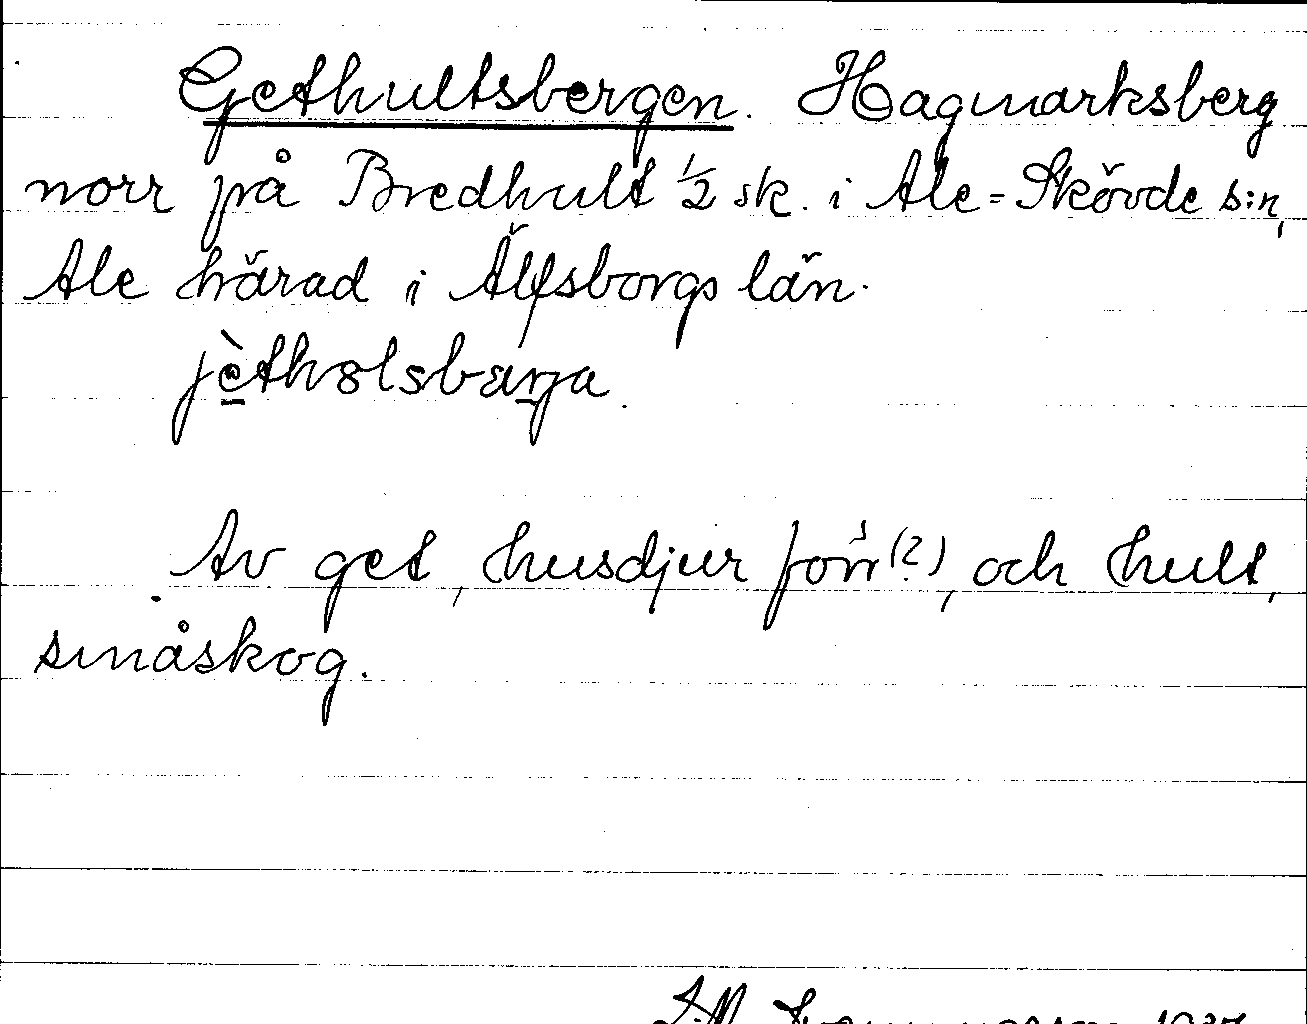 Gethultsbergen. Hagmarksberg
norr på Bredhult 1/2 sk. i Ale=Skövde s:n,
Ale härad i Älfsborgs län.
jètholsbärja.
Av get, husdjur förr(?), och hult,
småskog.